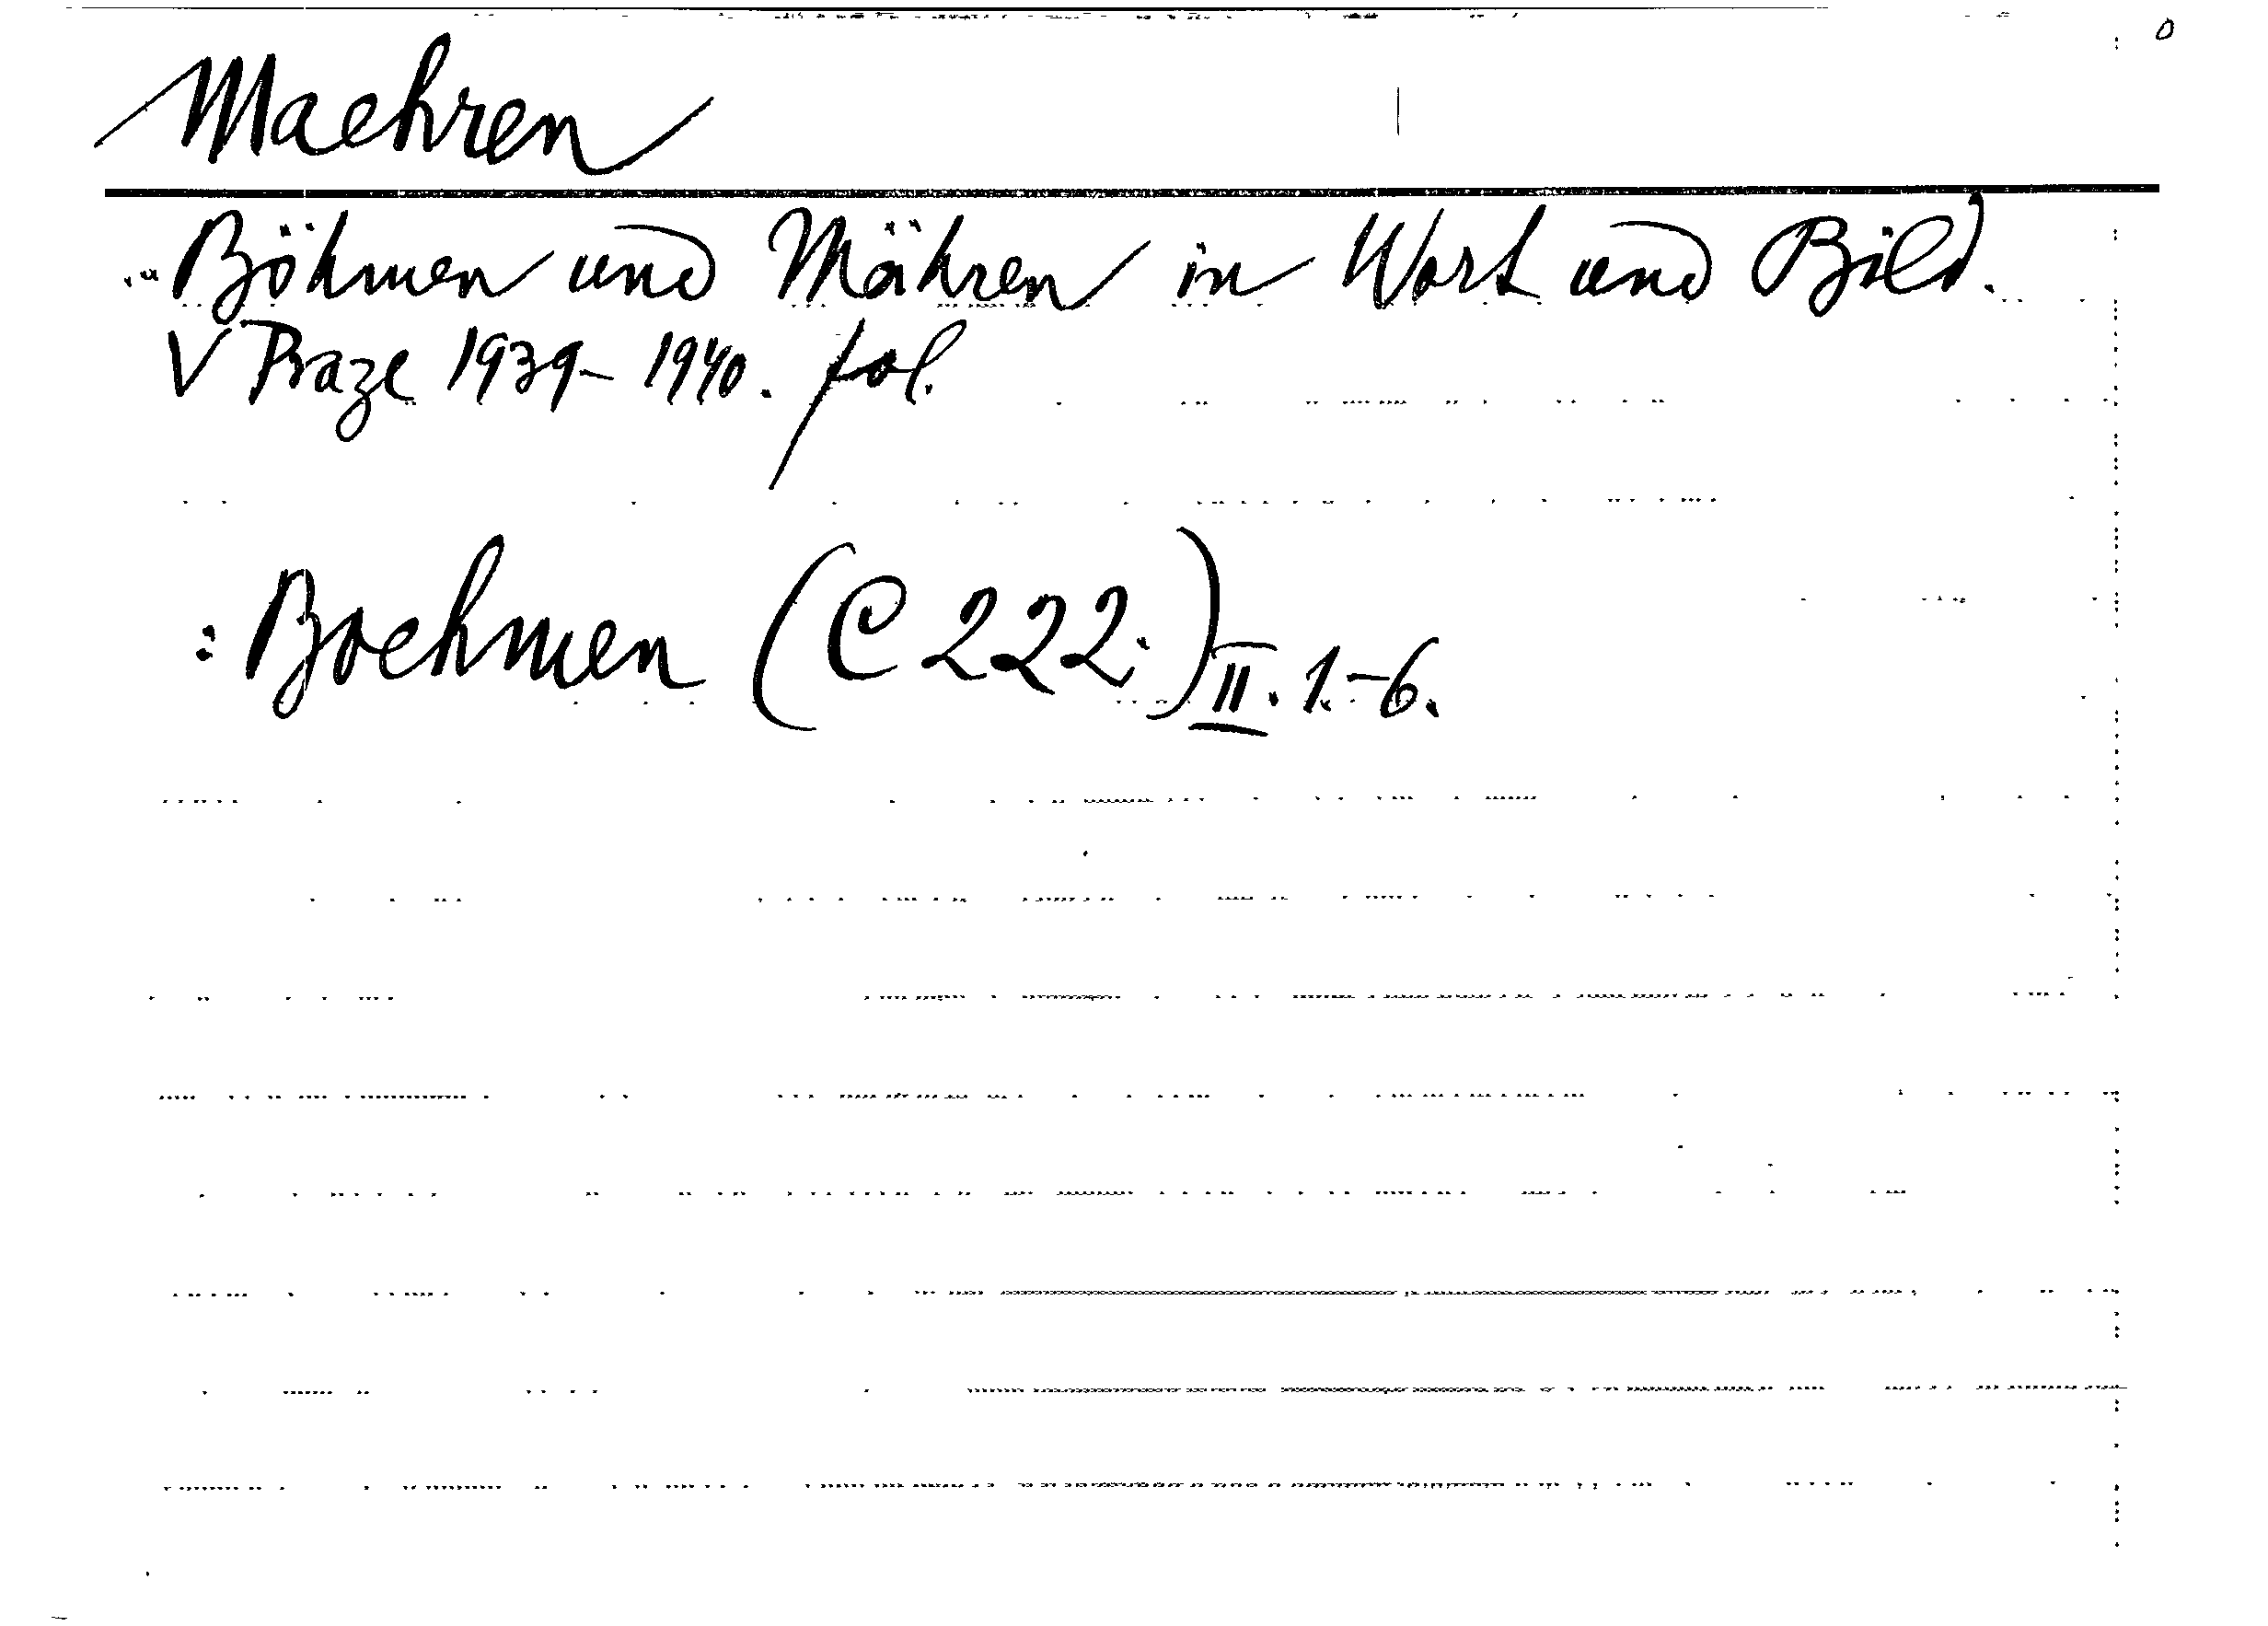 Maehren
"Böhmen und Mähren in Wort und Bild.
V Praze 1939-1940. fol.
: Boehmen (C 222.) II. 1.-6.